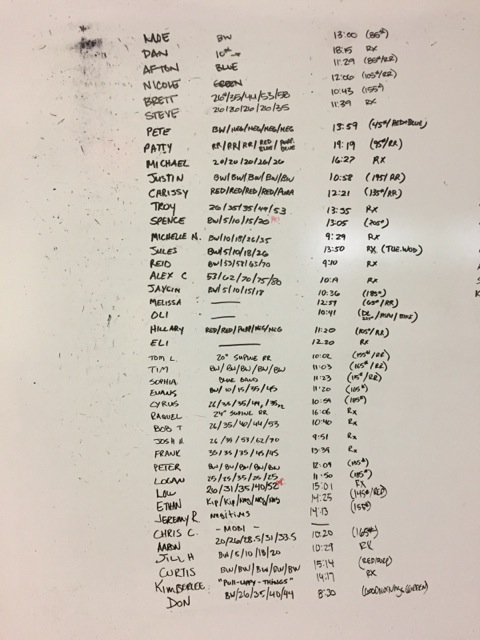 MOE BW 13:00 (85#)
DAN 10#→ 18:15 RX
AFTON BLUE 11:29 (85#/RR)
NICOLE GREEN 12:06 (105#/RR)
BRETT 26/35/44/53/58 10:43 (155#)
STEVE 20/20/20/20/35 11:39 RX
PETE BW/NEG/NEG/NEG/NEG 13:59 (45#/RED+BLUE)
PATTY RR/RR/RR/RED BLUE/PURP. BLUE 19:19 (95#/RR)
MICHAEL 20/20/20/26/26 16:27 RX
JUSTIN BW/BW/BW/BW/BW 10:58 (195/RR)
CARISSY RED/RED/RED/RED/PURP 12:21 (135#/RR)
TROY 26/35/35/44/53 13:35 RX
SPENCE BW/5/10/15/20 13:05 (205#)
MICHELLE N. BW/10/18/26/35 9:29 RX
JULES BW/5/10/18/26 13:50 RX (TUE.WOD)
REID BW/53/53/63/70 9:10 RX
ALEX C 53/62/70/75/80 10:19 RX
JAYCIN BW/5/10/15/18 10:36 (185#)
MELISSA —— 12:57 (65#/RR)
OLI —— 10:41
HILLARY RED/RED/PURP/NEG/NEG 11:20 (105#/RR)
ELI —— 12:20 RX
TOM L. 20" SUPINE RR 10:02 (155#/RR)
TIM BW/BW/BW/BW/BW 11:03 (165#/RR)
SOPHIA BLUE BAND 11:23 (115#/RR)
EVANS BW/10/15/35/45 11:20 (165#)
CYRUS 26/35/35/44/35 10:59 (165#)
RAQUEL 24" SUPINE RR 16:06 RX
BOB T 26/35/40/44/53 10:40 RX
JOSH H. 26/35/53/62/70 9:51 RX
FRANK 35/35/35/45/45 13:39 RX
PETER BW/BW/BW/BW/BW 12:09 (135#)
LOGAN 25/25/35/25/25 11:50 (185#)
LOW 26/31/35/40/52 15:01 RX
ETHAN KIP/KIP/NEG/NEG/NEG 14:25 (145#/RED)
JEREMY R. 14:13 (155#)
CHRIS C. - MOBI - ——
AARON 20/26/28.5/31/33.5 10:20 (165#)
JILL H BW/5/10/18/20 10:29 RX
CURTIS BW/BW/BW/BW/BW 15:14
KIMBERLEE "PULL-UPPY-THINGS" 14:17 RX
DON BW/26/35/40/44 8:30